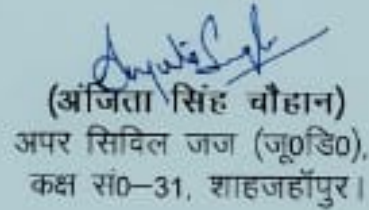 (अंजिता सिंह चौहान)
अपर सिविल जज (जू0डि0),
कक्ष सं0–31, शाहजहॉपुर।